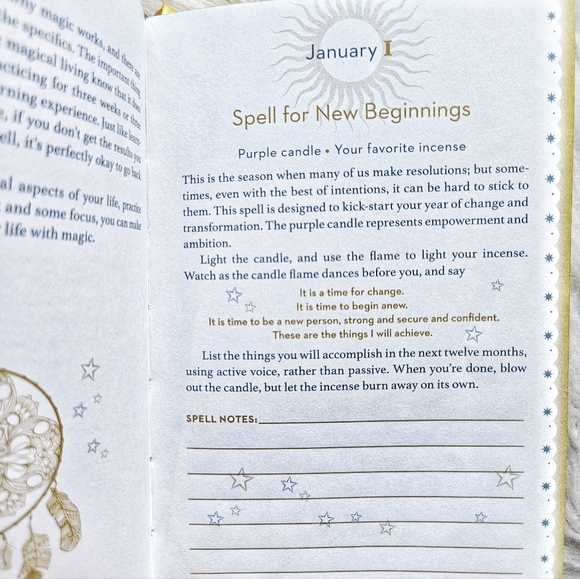 magic works, and there are
the specifics. The important thing
magical living know that it does
practicing for three weeks or three
learning experience. Just like
if you don't get the results you
it's perfectly okay to go back
aspects of your life, practice
and some focus, you can make
life with magic.
January 1
Spell for New Beginnings
Purple candle • Your favorite incense
This is the season when many of us make resolutions; but some-
times, even with the best of intentions, it can be hard to stick to
them. This spell is designed to kick-start your year of change and
transformation. The purple candle represents empowerment and
ambition.
Light the candle, and use the flame to light your incense.
Watch as the candle flame dances before you, and say
It is a time for change.
It is time to begin anew.
It is time to be a new person, strong and secure and confident.
These are the things I will achieve.
List the things you will accomplish in the next twelve months,
using active voice, rather than passive. When you're done, blow
out the candle, but let the incense burn away on its own.
SPELL NOTES: